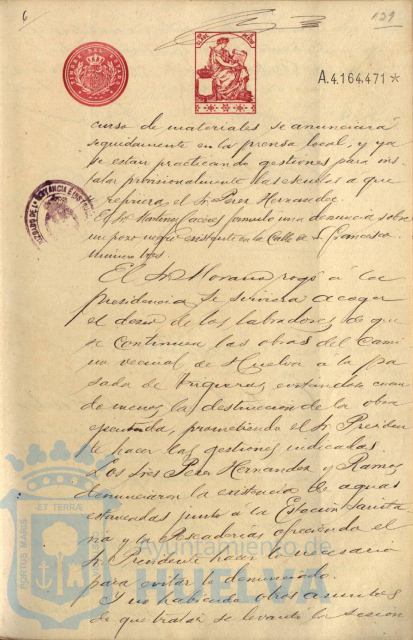 6
129
TIMBRE DEL ESTADO
A.4.164.471 *
curso de materiales se anunciará
seguidamente en la prensa local, y ya
se estan practicando gestiones para ins-
talar provisionalmente las escuelas a que
refiriera el Sr. Perez Hernandez.
El Sr. Martinez formuló una denuncia sobre
un pozo negro existente en la Calle de S. Francisco
número tres
El Sr. Morano rogó á la
presidencia se sirviera acoger
el deseo de los labradores de que
se continuen las obras del Cami-
no vecinal de Huelva a la po-
sada de Trigueros, evitandose cuan-
do menos la destruccion de la obra
ejecutada, prometiendo el Sr. Presiden-
te hacer las gestiones indicadas.
Los Sres Perez Hernandez y Ramos
denunciaron la existencia de aguas
estancadas junto á la Estación Sanita-
ria y la Pescaderias ofreciendo el
Sr. Presidente hacer lo necesario
para evitar lo denunciado.
Y no habiendo otros asuntos
de que tratar se levantó la sesion
PORTUS MARIS ET TERRAE
Ayuntamiento de
HUELVA